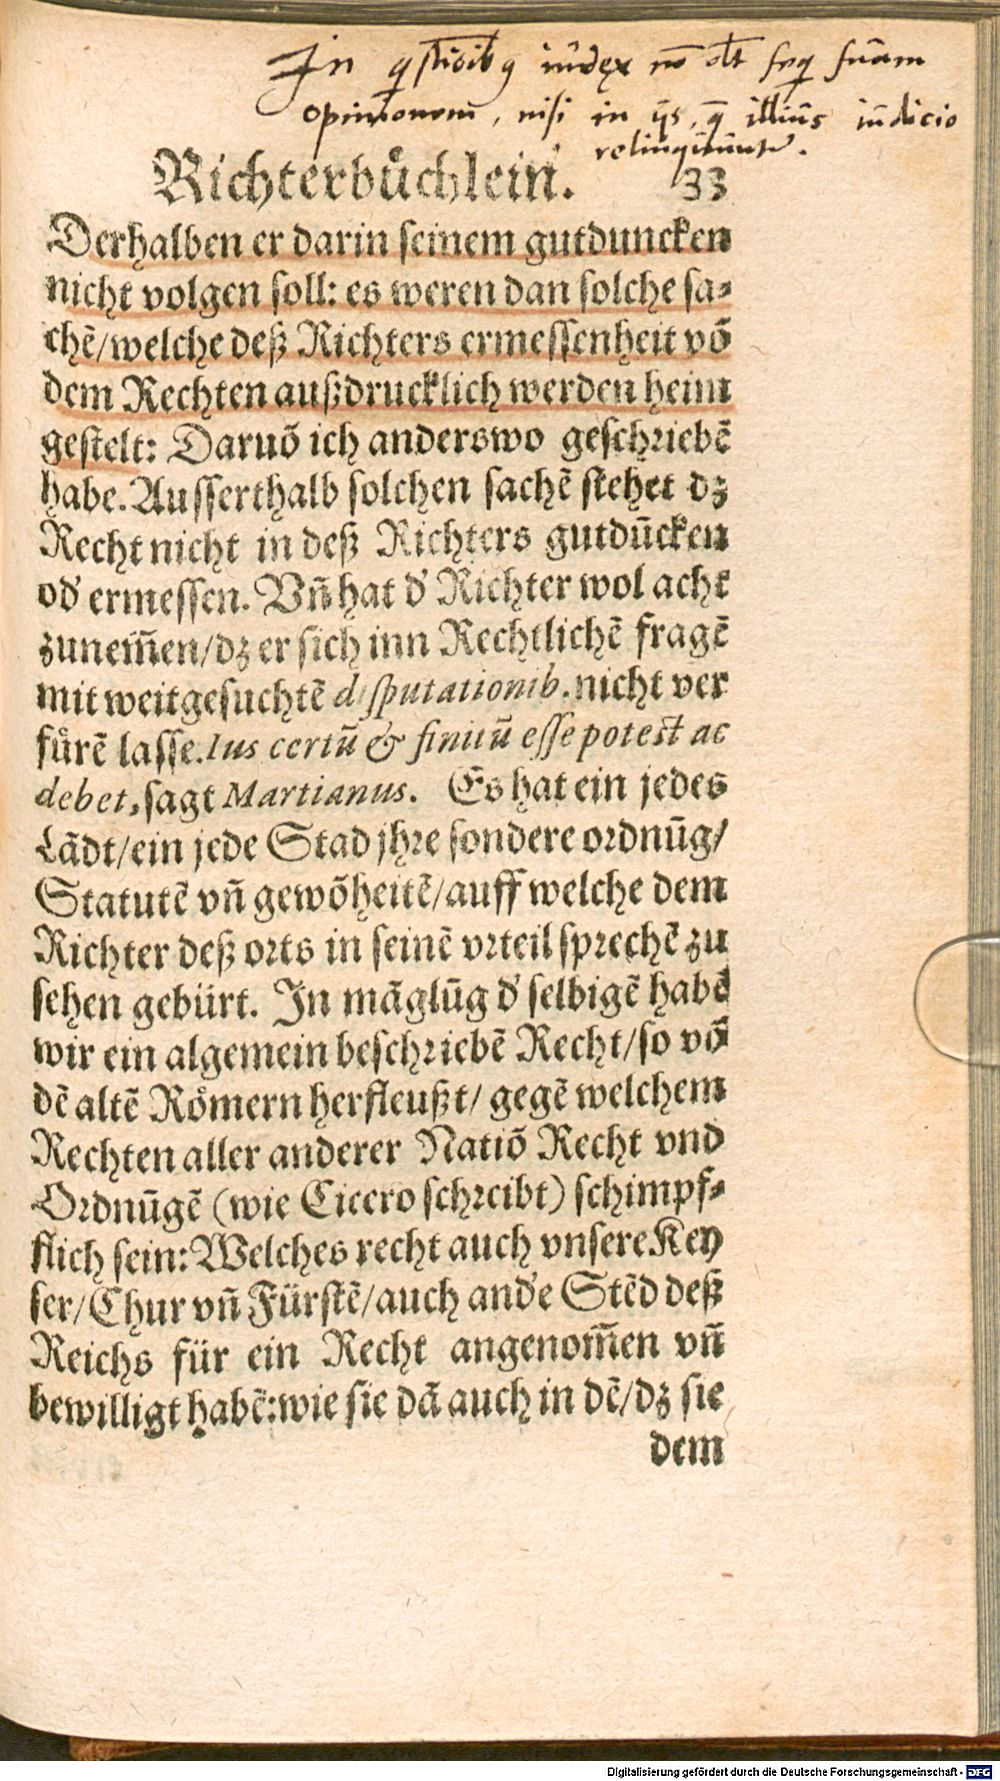 In qstioibꝯ iudex nō dt̄ seq̄ suam
opinionem, nisi in ijs, q̄ illius iudicio
relinquuntr.
Richterbuͤchlein. 33
Derhalben er darin seinem gutduncken
nicht volgen soll: es weren dan solche sa⸗
chẽ/welche deß Richters ermessenheit võ
dem Rechten außdrucklich werden heim
gestelt: Daruõ ich anderswo geschriebẽ
habe. Ausserthalb solchen sachẽ stehet dz
Recht nicht in deß Richters gutdũcken
od' ermessen. Vñ hat d' Richter wol acht
zunem̃en/dz er sich inn Rechtlichẽ fragẽ
mit weitgesuchtẽ disputationib. nicht ver
fuͤrẽ lasse. Ius certũ & finitũ esse potest ac
debet, sagt Martianus. Es hat ein jedes
Lãdt/ein jede Stad jhre sondere ordnũg/
Statutẽ vñ gewõheitẽ/auff welche dem
Richter deß orts in seinẽ vrteil sprechẽ zu
sehen gebürt. In mãglũg d' selbigẽ habẽ
wir ein algemein beschriebẽ Recht/so võ
dẽ altẽ Roͤmern herfleußt/ gegẽ welchem
Rechten aller anderer Natiõ Recht vnd
Ordnũgẽ (wie Cicero schreibt) schimpf⸗
flich sein: Welches recht auch vnsere Key
ser/Chur vñ Fürstẽ/auch and'e Stẽd deß
Reichs für ein Recht angenom̃en vñ
bewilligt habẽ: wie sie dã auch in dẽ/dz sie
dem
Digitalisierung gefördert durch die Deutsche Forschungsgemeinschaft - DFG